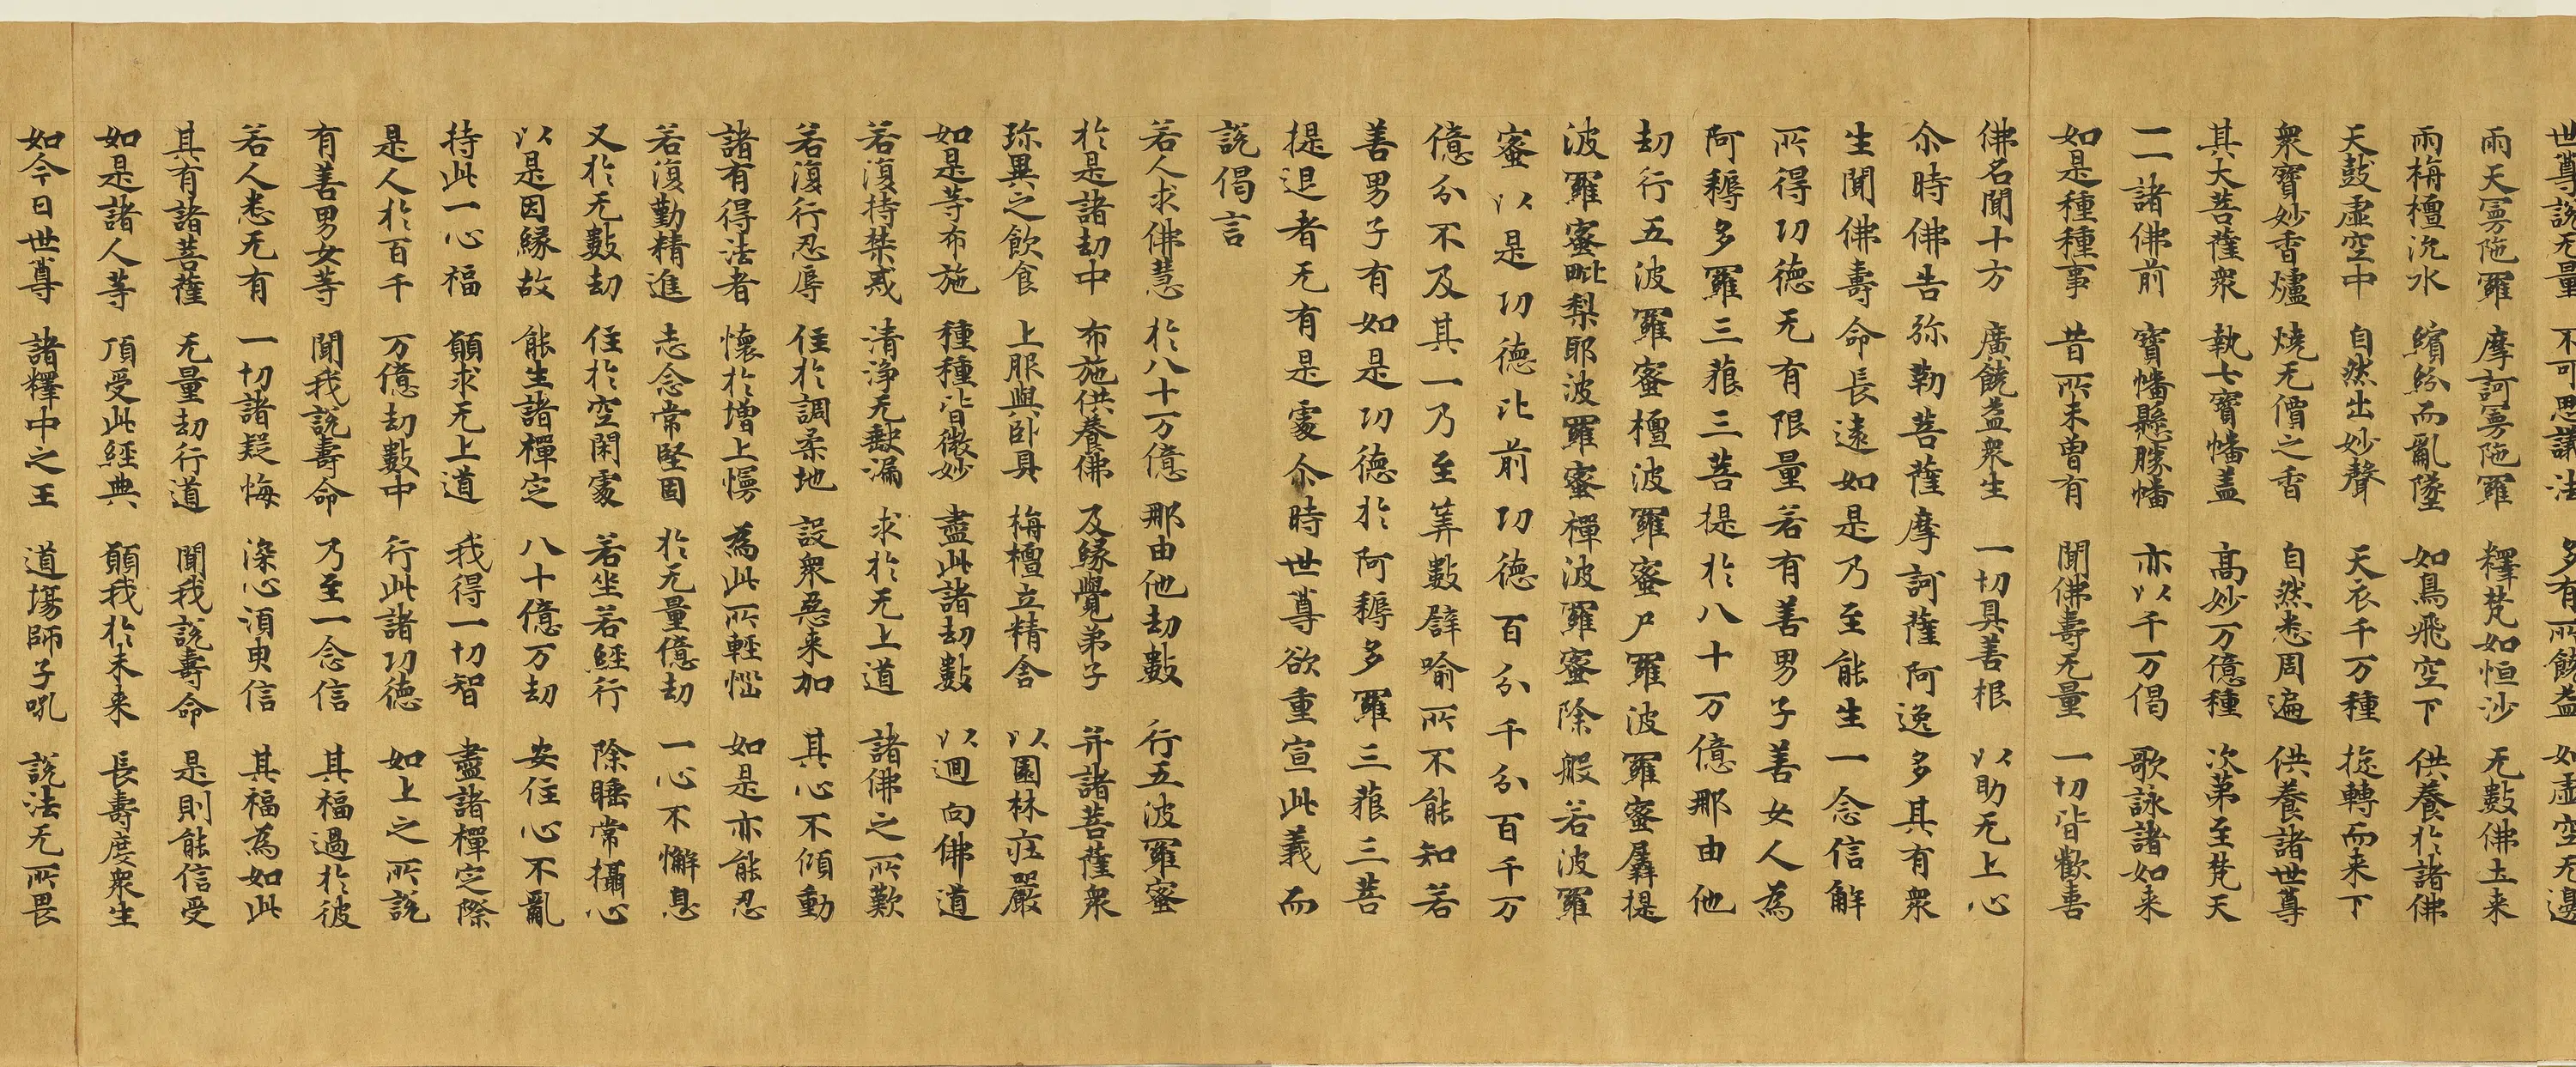 世尊說无量 不可思議法 多有所饒益 如虛空无邊
雨天冩陁羅 摩訶冩陁羅 釋梵如恒沙 无數佛土来
雨栴檀沉水 繽紛而亂墜 如鳥飛空下 供養於諸佛
天鼓虛空中 自然出妙聲 天衣千万種 旋轉而来下
衆寶妙香爐 燒无價之香 自然悉周遍 供養諸世尊
其大菩薩衆 執七寶幡盖 高妙万億種 次第至梵天
一一諸佛前 寶幡懸勝幡 亦以千万偈 歌詠諸如来
如是種種事 昔所未曽有 聞佛壽无量 一切皆歡喜
佛名聞十方 廣饒益衆生 一切具善根 以助无上心
尒時佛告弥勒菩薩摩訶薩阿逸多其有衆
生聞佛壽命長遠如是乃至能生一念信解
所得功德无有限量若有善男子善女人為
阿耨多羅三藐三菩提於八十万億那由他
劫行五波羅蜜檀波羅蜜尸羅波羅蜜羼提
波羅蜜毗梨耶波羅蜜禪波羅蜜除般若波羅
蜜以是功德比前功德百分千分百千万
億分不及其一乃至筭數譬喻所不能知若
善男子有如是功德於阿耨多羅三藐三菩
提退者无有是處尒時世尊欲重宣此義而
說偈言
若人求佛慧 於八十万億 那由他劫數 行五波羅蜜
於是諸劫中 布施供養佛 及緣覺弟子 并諸菩薩衆
珎異之飲食 上服與卧具 栴檀立精舍 以園林莊嚴
如是等布施 種種皆微妙 盡此諸劫數 以迴向佛道
若復持禁戒 清淨无𡙇漏 求於无上道 諸佛之所歎
若復行忍辱 住於調柔地 設衆惡来加 其心不傾動
諸有得法者 懷於增上慢 為此所輕惱 如是亦能忍
若復勤精進 志念常堅固 於无量億劫 一心不懈息
又於无數劫 住於空閑處 若坐若經行 除睡常攝心
以是因緣故 能生諸禪定 八十億万劫 安住心不亂
持此一心福 願求无上道 我得一切智 盡諸禪定際
是人於百千 万億劫數中 行此諸功德 如上之所說
有善男女等 聞我說壽命 乃至一念信 其福過於彼
若人悉无有 一切諸疑悔 深心須臾信 其福為如此
其有諸菩薩 无量劫行道 聞我說壽命 是則能信受
如是諸人等 頂受此經典 願我於未来 長壽度衆生
如今日世尊 諸釋中之王 道場師子吼 說法无所畏